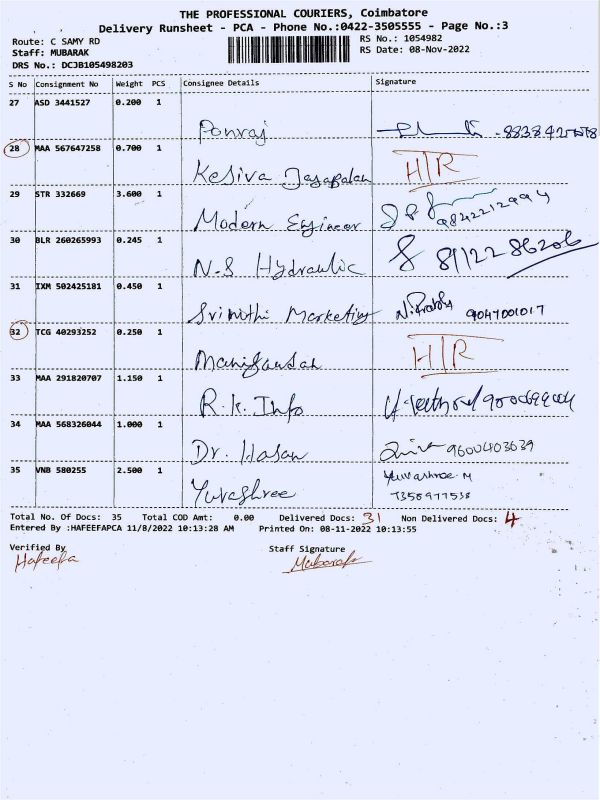 THE PROFESSIONAL COURIERS, Coimbatore
Delivery Runsheet - PCA - Phone No.:0422-3505555 - Page No.:3
Route: C SAMY RD
RS No.: 1054982
Staff: MUBARAK
RS Date: 08-Nov-2022
DRS No.: DCJB105498203
S No Consignment No Weight PCS Consignee Details Signature
27 ASD 3441527 0.200 1
Ponraj
28 MAA 567647258 0.700 1
Kesiva H/R
29 STR 332669 3.600 1
Modern Engineer 9842212994
30 BLR 260265993 0.245 1
N.S Hydraulic 8112286206
31 IXM 502425181 0.450 1
Srinithi Marketing 9047001017
32 TCG 40293252 0.250 1
H/R
33 MAA 291820707 1.150 1
R.K. Info
34 MAA 568326044 1.000 1
Dr. Hasan 9600403639
35 VNB 580255 2.500 1
Yuvashree Yuvashree M
7358977538
Total No. Of Docs: 35 Total COD Amt: 0.00 Delivered Docs: 31 Non Delivered Docs: 4
Entered By :HAFEEFAPCA 11/8/2022 10:13:28 AM Printed On: 08-11-2022 10:13:55
Verified By
Staff Signature
Hafeefa
Mubarak